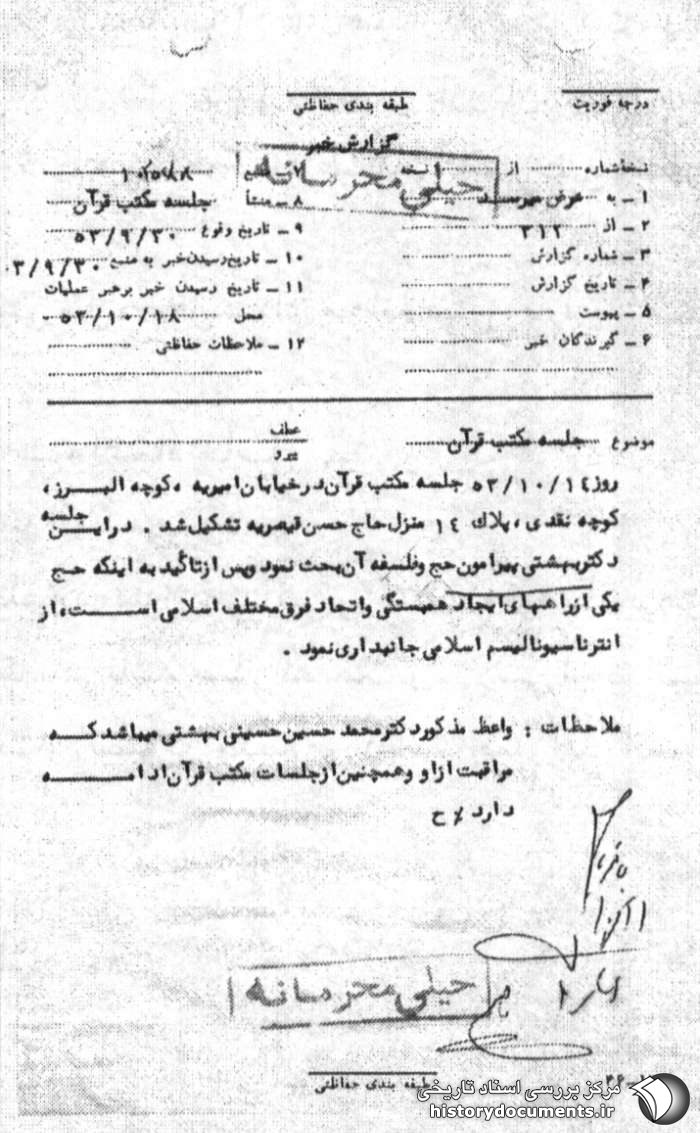 درجه فوریت
طبقه بندی حفاظتی
گزارش خبر
خیلی محرمانه
نسخه شماره از نسخه
۱ ـ به عرض میرسد
۲ ـ از ۳۱۲
۳ ـ شماره گزارش
۴ ـ تاریخ گزارش
۵ ـ پیوست
۶ ـ گیرندگان خبر
۷
۸ ـ منشأ جلسه مکتب قرآن
۹ ـ تاریخ وقوع ۵۳/۹/۳۰
۱۰ ـ تاریخ رسیدن خبر به منبع ۳/۹/۳۰
۱۱ ـ تاریخ رسیدن خبر برهبر عملیات
محل ۵۳/۱۰/۱۸
۱۲ ـ ملاحظات حفاظتی
موضوع جلسه مکتب قرآن
عطف
پیرو
روز ۵۳/۱۰/۱۴ جلسه مکتب قرآن در خیابان امیریه ، کوچه البرز ،
کوچه نقدی ، پلاک ۱۴ منزل حاج حسن قیصریه تشکیل شد . در این جلسه
دکتر بهشتی پیرامون حج و فلسفه آن بحث نمود و پس از تأکید به اینکه حج
یکی از راههای ایجاد همبستگی و اتحاد فرق مختلف اسلامی است ، از
انترناسیونالیسم اسلامی جانبداری نمود .
ملاحظات : واعظ مذکور دکتر محمد حسین حسینی بهشتی میباشد که
مراقبت از او و همچنین از جلسات مکتب قرآن ادامه
دارد ٪ ح
خیلی محرمانه
طبقه بندی حفاظتی
مرکز بررسی اسناد تاریخی
historydocuments.ir